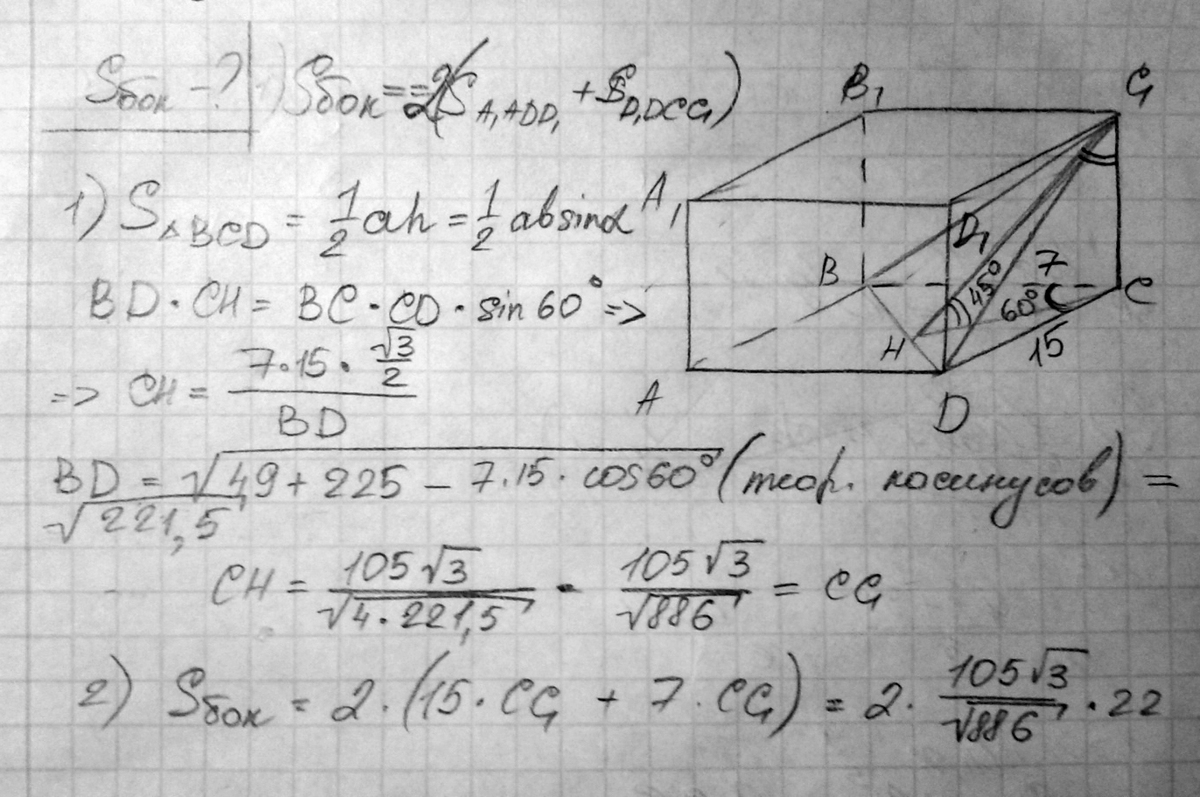 Sбок - ? 1) Sбок = = 2(S A₁ADD₁ + S D₁DCC₁)
1) S△BCD = 1/2 ah = 1/2 absinα
BD · CH = BC · CD · sin 60° =>
=> CH = (7·15 · √3/2) / BD
BD = √(49 + 225 − 7.15 · cos60°) (теор. косинусов) =
√221,5
CH = 105√3 / √(4·221,5) = 105√3 / √886 = CC₁
2) Sбок = 2 · (15 · CC₁ + 7 · CC₁) = 2 · 105√3 / √886 · 22
B₁ C₁
A₁
D₁
B 45° 7 C
60°
H 15
A D